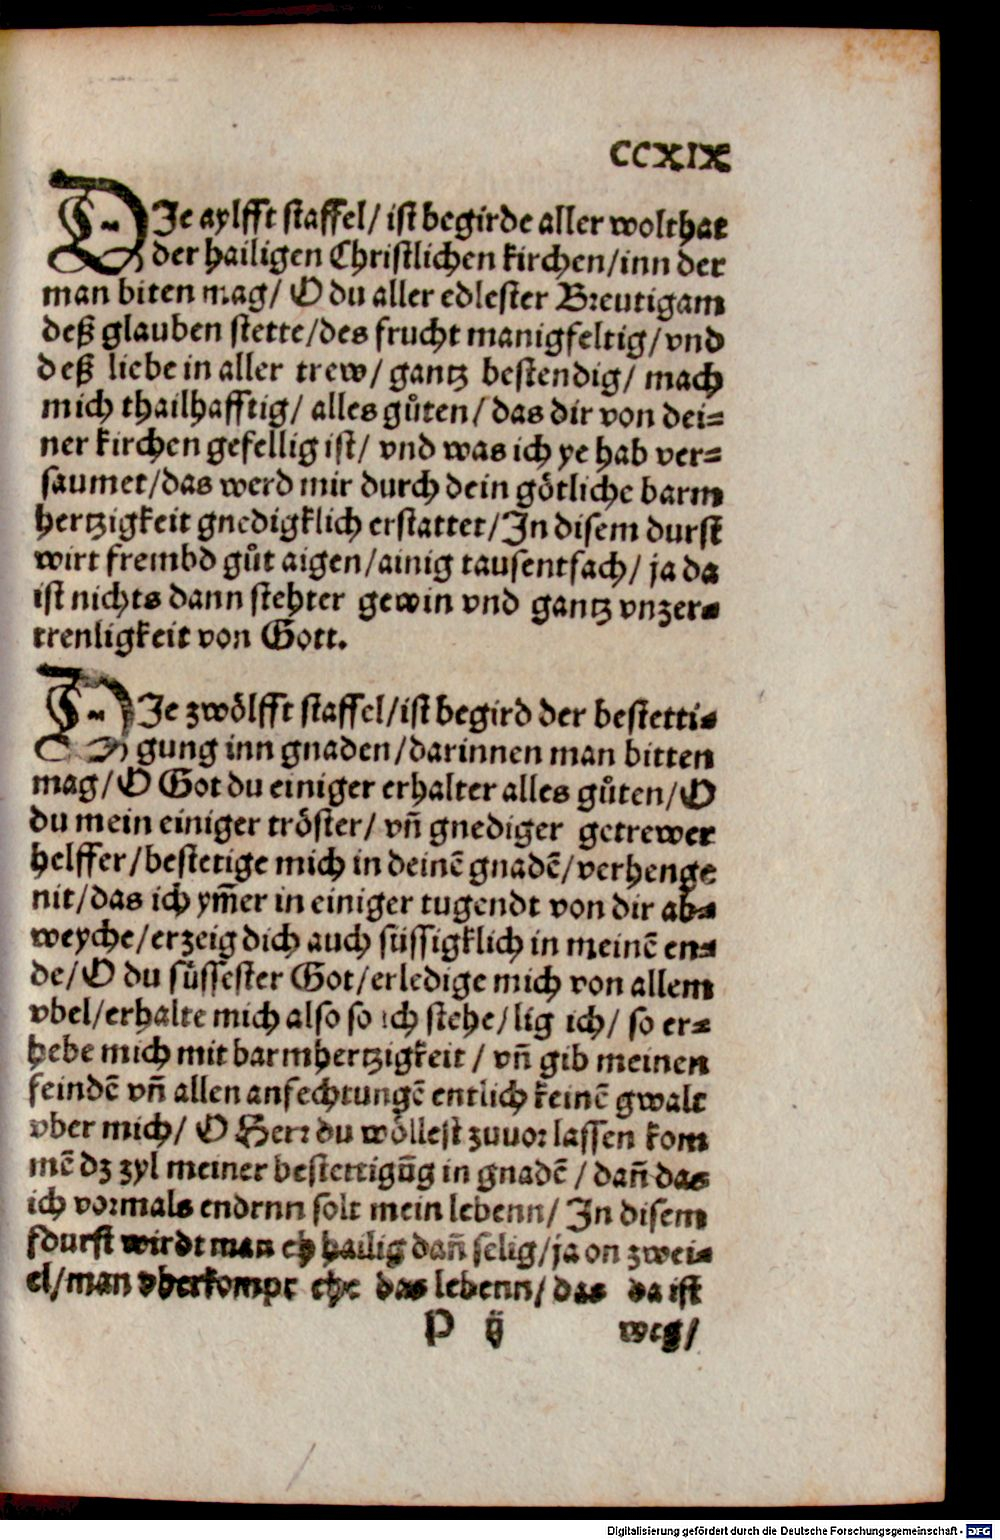 CCXIX
DIe aylfft staffel/ ist begirde aller wolthat
der hailigen Christlichen kirchen/inn der
man biten mag/ O du aller edlester Breutigam
deß glauben stette/des frucht manigfeltig/vnd
deß liebe in aller trew/ gantz bestendig/ mach
mich thailhafftig/ alles gůten/das dir von dei=
ner kirchen gefellig ist/ vnd was ich ye hab ver=
saumet/das werd mir durch dein götliche barm
hertzigkeit gnedigklich erstattet/In disem durst
wirt frembd gůt aigen/ainig tausentfach/ ja da
ist nichts dann stehter gewin vnd gantz vnzer=
trenligkeit von Gott.
DIe zwölfft staffel/ist begird der bestetti=
gung inn gnaden/darinnen man bitten
mag/O Got du einiger erhalter alles gůten/O
du mein einiger tröster/ vñ gnediger getrewer
helffer/bestetige mich in deinē gnadē/verhenge
nit/das ich ym̄er in einiger tugendt von dir ab=
weyche/erzeig dich auch süssigklich in meinē en=
de/O du süssester Got/erledige mich von allem
vbel/erhalte mich also so ich stehe/lig ich/ so er=
hebe mich mit barmhertzigkeit / vñ gib meinen
feindē vñ allen anfechtungē entlich keinē gwalt
vber mich/ O Herr du wöllest zuuor lassen kom
mē dz zyl meiner bestettigūg in gnadē / dañ das
ich vormals endrnn solt mein lebenn/ In disem
fdurst wirdt man eh hailig dañ selig/ja on zwei=
el/man vberkompt ehe das lebenn/das da ist
P ij weg/
Digitalisierung gefördert durch die Deutsche Forschungsgemeinschaft - DFG